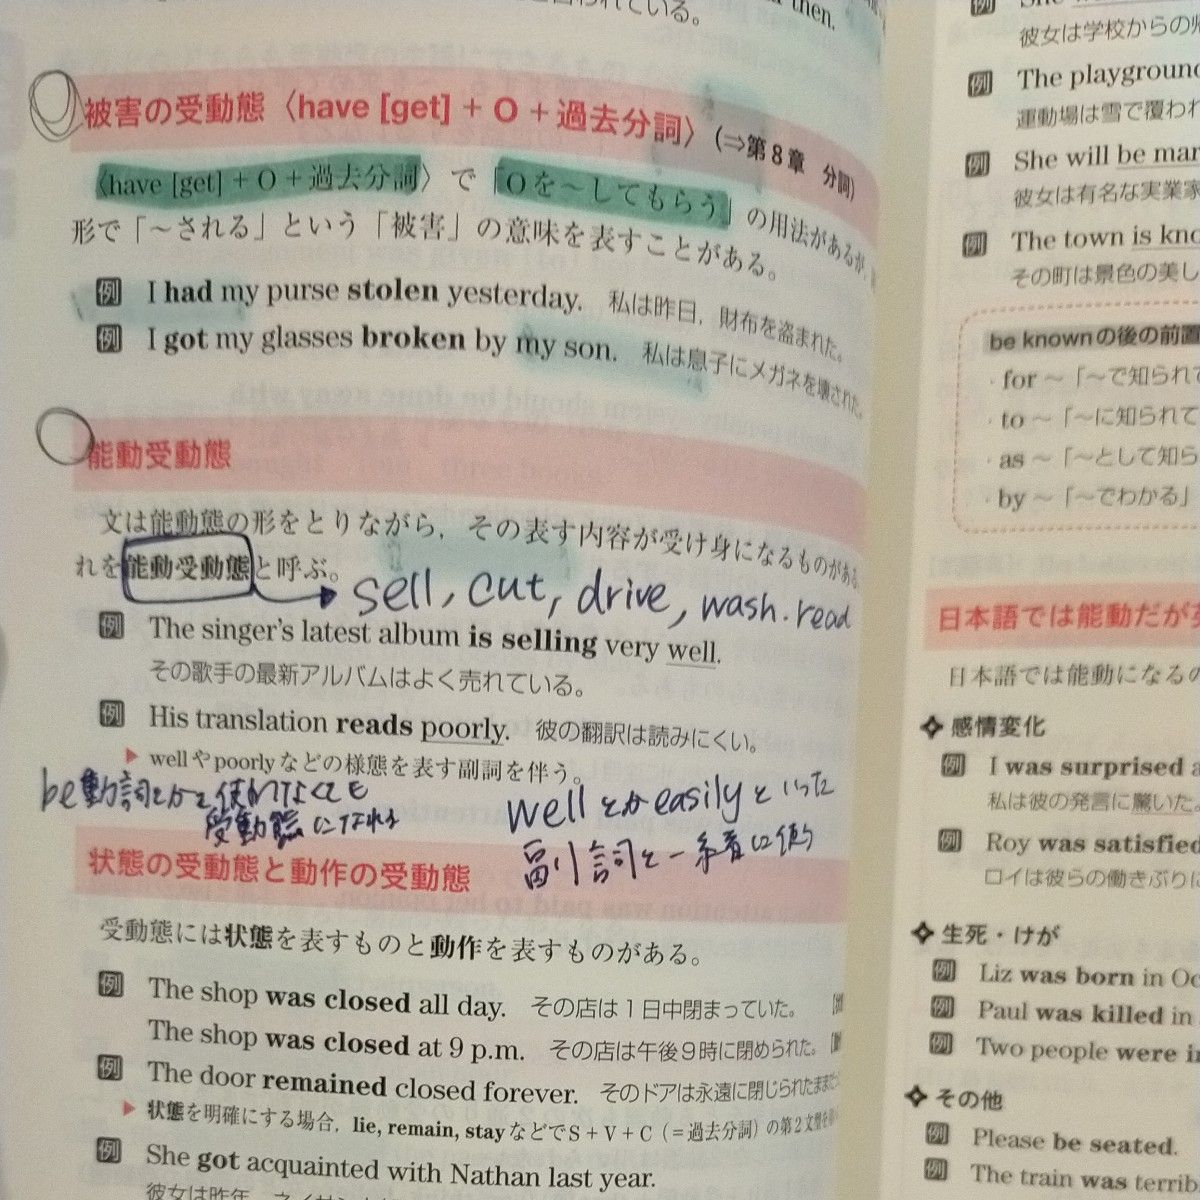 then.
われている。
被害の受動態〈have [get] + O + 過去分詞〉(⇒第8章 分詞)
〈have [get] + O + 過去分詞〉で「Oを～してもらう」の用法があるが,
形で「～される」という「被害」の意味を表すことがある。
例 I had my purse stolen yesterday. 私は昨日，財布を盗まれた。
例 I got my glasses broken by my son. 私は息子にメガネを壊された。
能動受動態
文は能動態の形をとりながら，その表す内容が受け身になるものがある
れを能動受動態と呼ぶ。
sell, cut, drive, wash. read
例 The singer's latest album is selling very well.
その歌手の最新アルバムはよく売れている。
例 His translation reads poorly. 彼の翻訳は読みにくい。
▶ wellやpoorlyなどの様態を表す副詞を伴う。
be動詞とかを使わなくても
受動態になれる
wellとかeasilyといった
副詞と一緒に使う
状態の受動態と動作の受動態
受動態には状態を表すものと動作を表すものがある。
例 The shop was closed all day. その店は1日中閉まっていた。
The shop was closed at 9 p.m. その店は午後9時に閉められた。
例 The door remained closed forever. そのドアは永遠に閉じられたまま
▶ 状態を明確にする場合，lie, remain, stayなどでS + V + C（＝過去分詞）の第2文型を
例 She got acquainted with Nathan last year.
彼女は昨年，ネイサン
例 She
彼女は学校からの帰
例 The playground
運動場は雪で覆われ
例 She will be mar
彼女は有名な実業家
例 The town is kno
その町は景色の美し
be knownの後の前置
・for ～「～で知られて
・to ～「～に知られて
・as ～「～として知ら
・by ～「～でわかる」
日本語では能動だが英
日本語では能動になるの
感情変化
例 I was surprised a
私は彼の発言に驚いた。
例 Roy was satisfied
ロイは彼らの働きぶりに
生死・けが
例 Liz was born in Oc
例 Paul was killed in
例 Two people were in
その他
例 Please be seated.
例 The train was terrib